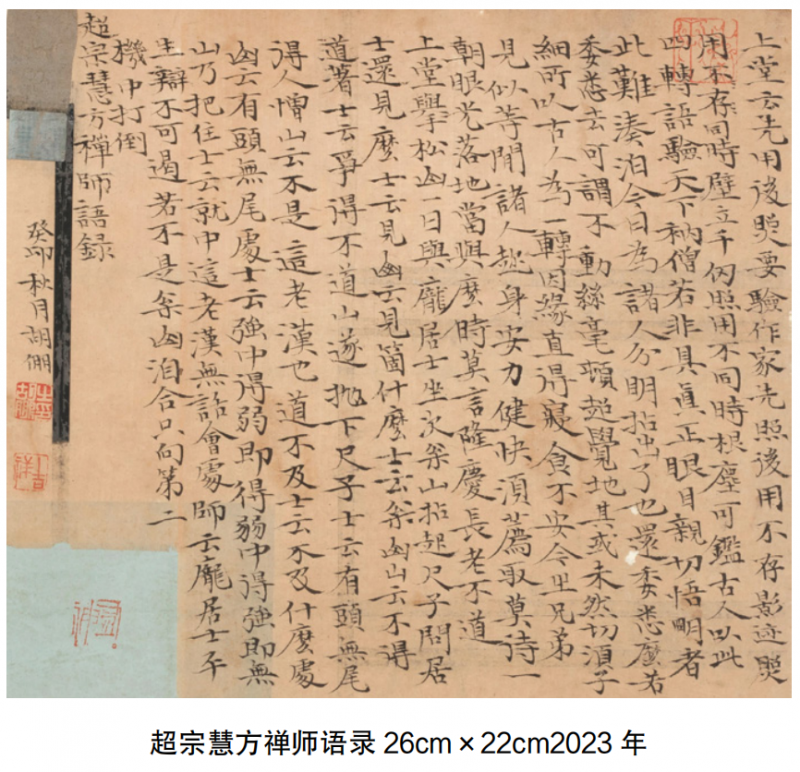 上堂云先用後照要驗作家先照後用不存影迹照
用不存同時壁立千仞照用不同時根塵可鑑古人以此
四轉語驗天下衲僧若非具真正眼目親切悟明者
此難湊泊今日為諸人分明拈出了也還委悉麼若
委悉去可謂不動絲毫頓超覺地其或未然切須子
細所以古人為一轉因緣直得寢食不安今生兄弟
見似等閒諸人趁身安力健快須薦取莫待一
朝眼光落地當與麼時莫言隆慶長老不道
上堂擧松山一日與龐居士坐次枀山拈起尺子問居
士還見麼士云見山云見箇什麼士云枀山山云不得
道著士云爭得不道山遂抛下尺子士云有頭無尾
得人憎山云不是這老漢也道不及士云不及什麼處
山云有頭無尾處士云強中得弱即得弱中得強即無
山乃把住士云就中這老漢無話會處師云龐居士平
生辯不可遏若不是枀山洎合只向第二
機中打倒
超宗慧方禪師語録
癸卯秋月胡倗
超宗慧方禅师语录26cm×22cm2023年